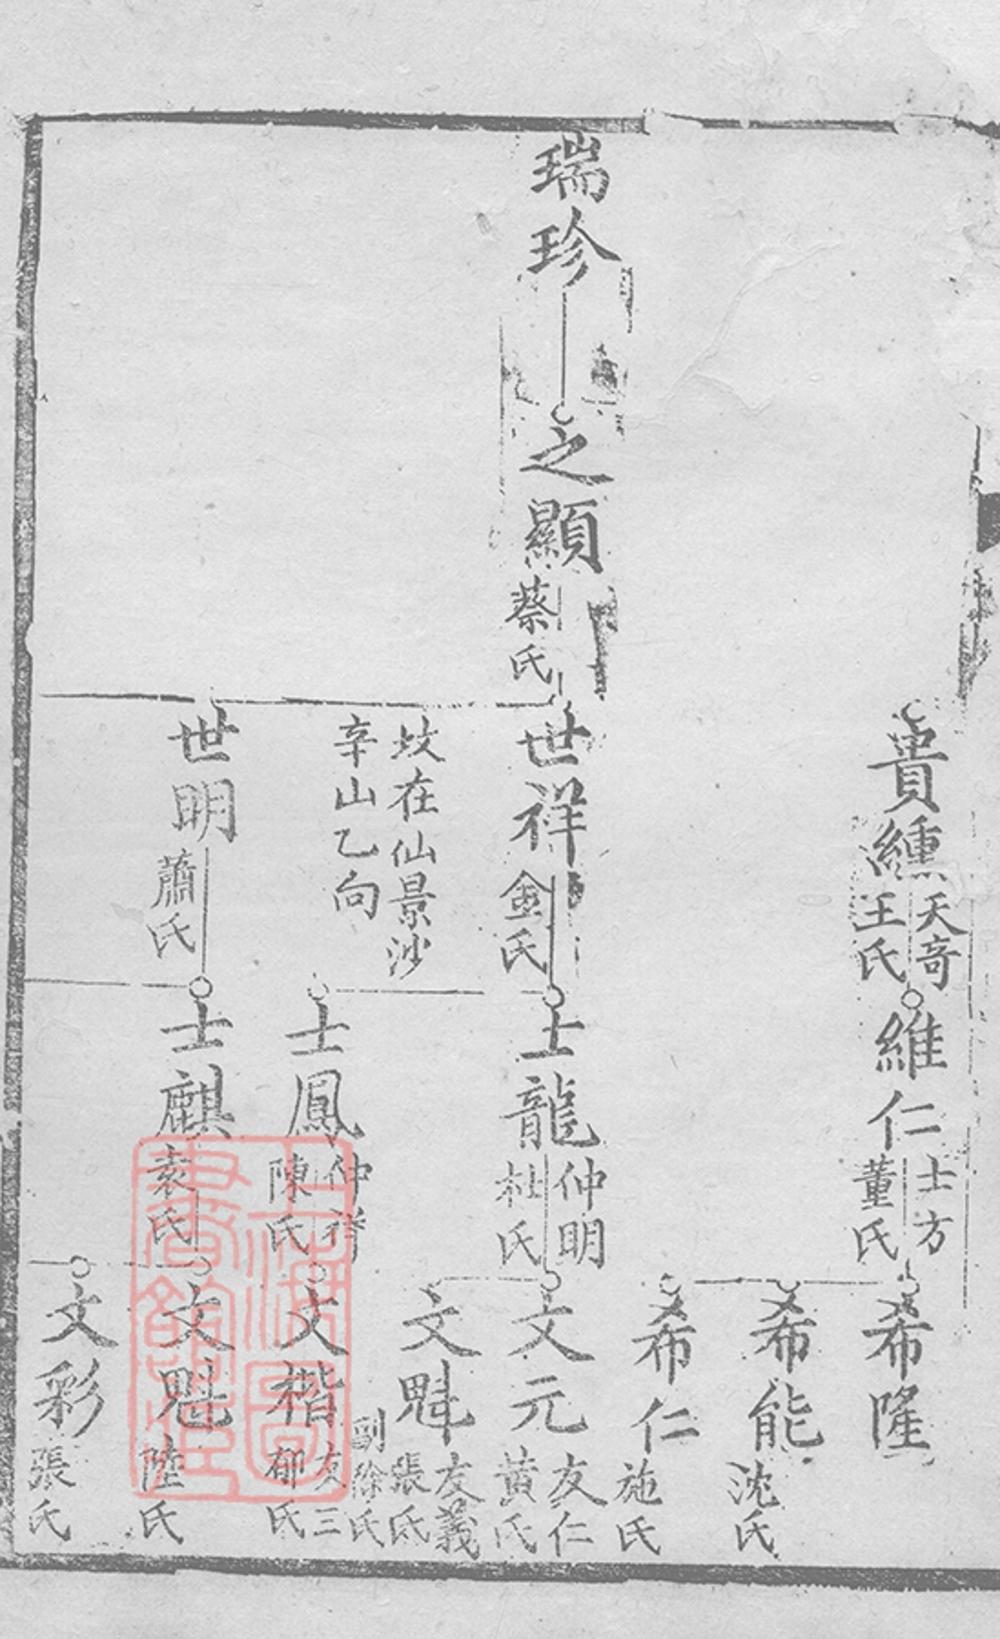 貴纁
天奇
王氏
維仁
士方
董氏
希隆
希能
沈氏
希仁
施氏
瑞珍
之顯
蔡氏
世祥
金氏
坟在仙景沙
辛山乙向
士龍
仲明
杜氏
文元
友仁
黄氏
文魁
友義
張氏
副徐氏
士鳳
仲祥
陳氏
文楷
友三
郁氏
世明
蕭氏
士麒
袁氏
文魁
陸氏
文彩
張氏
上海圖書館藏